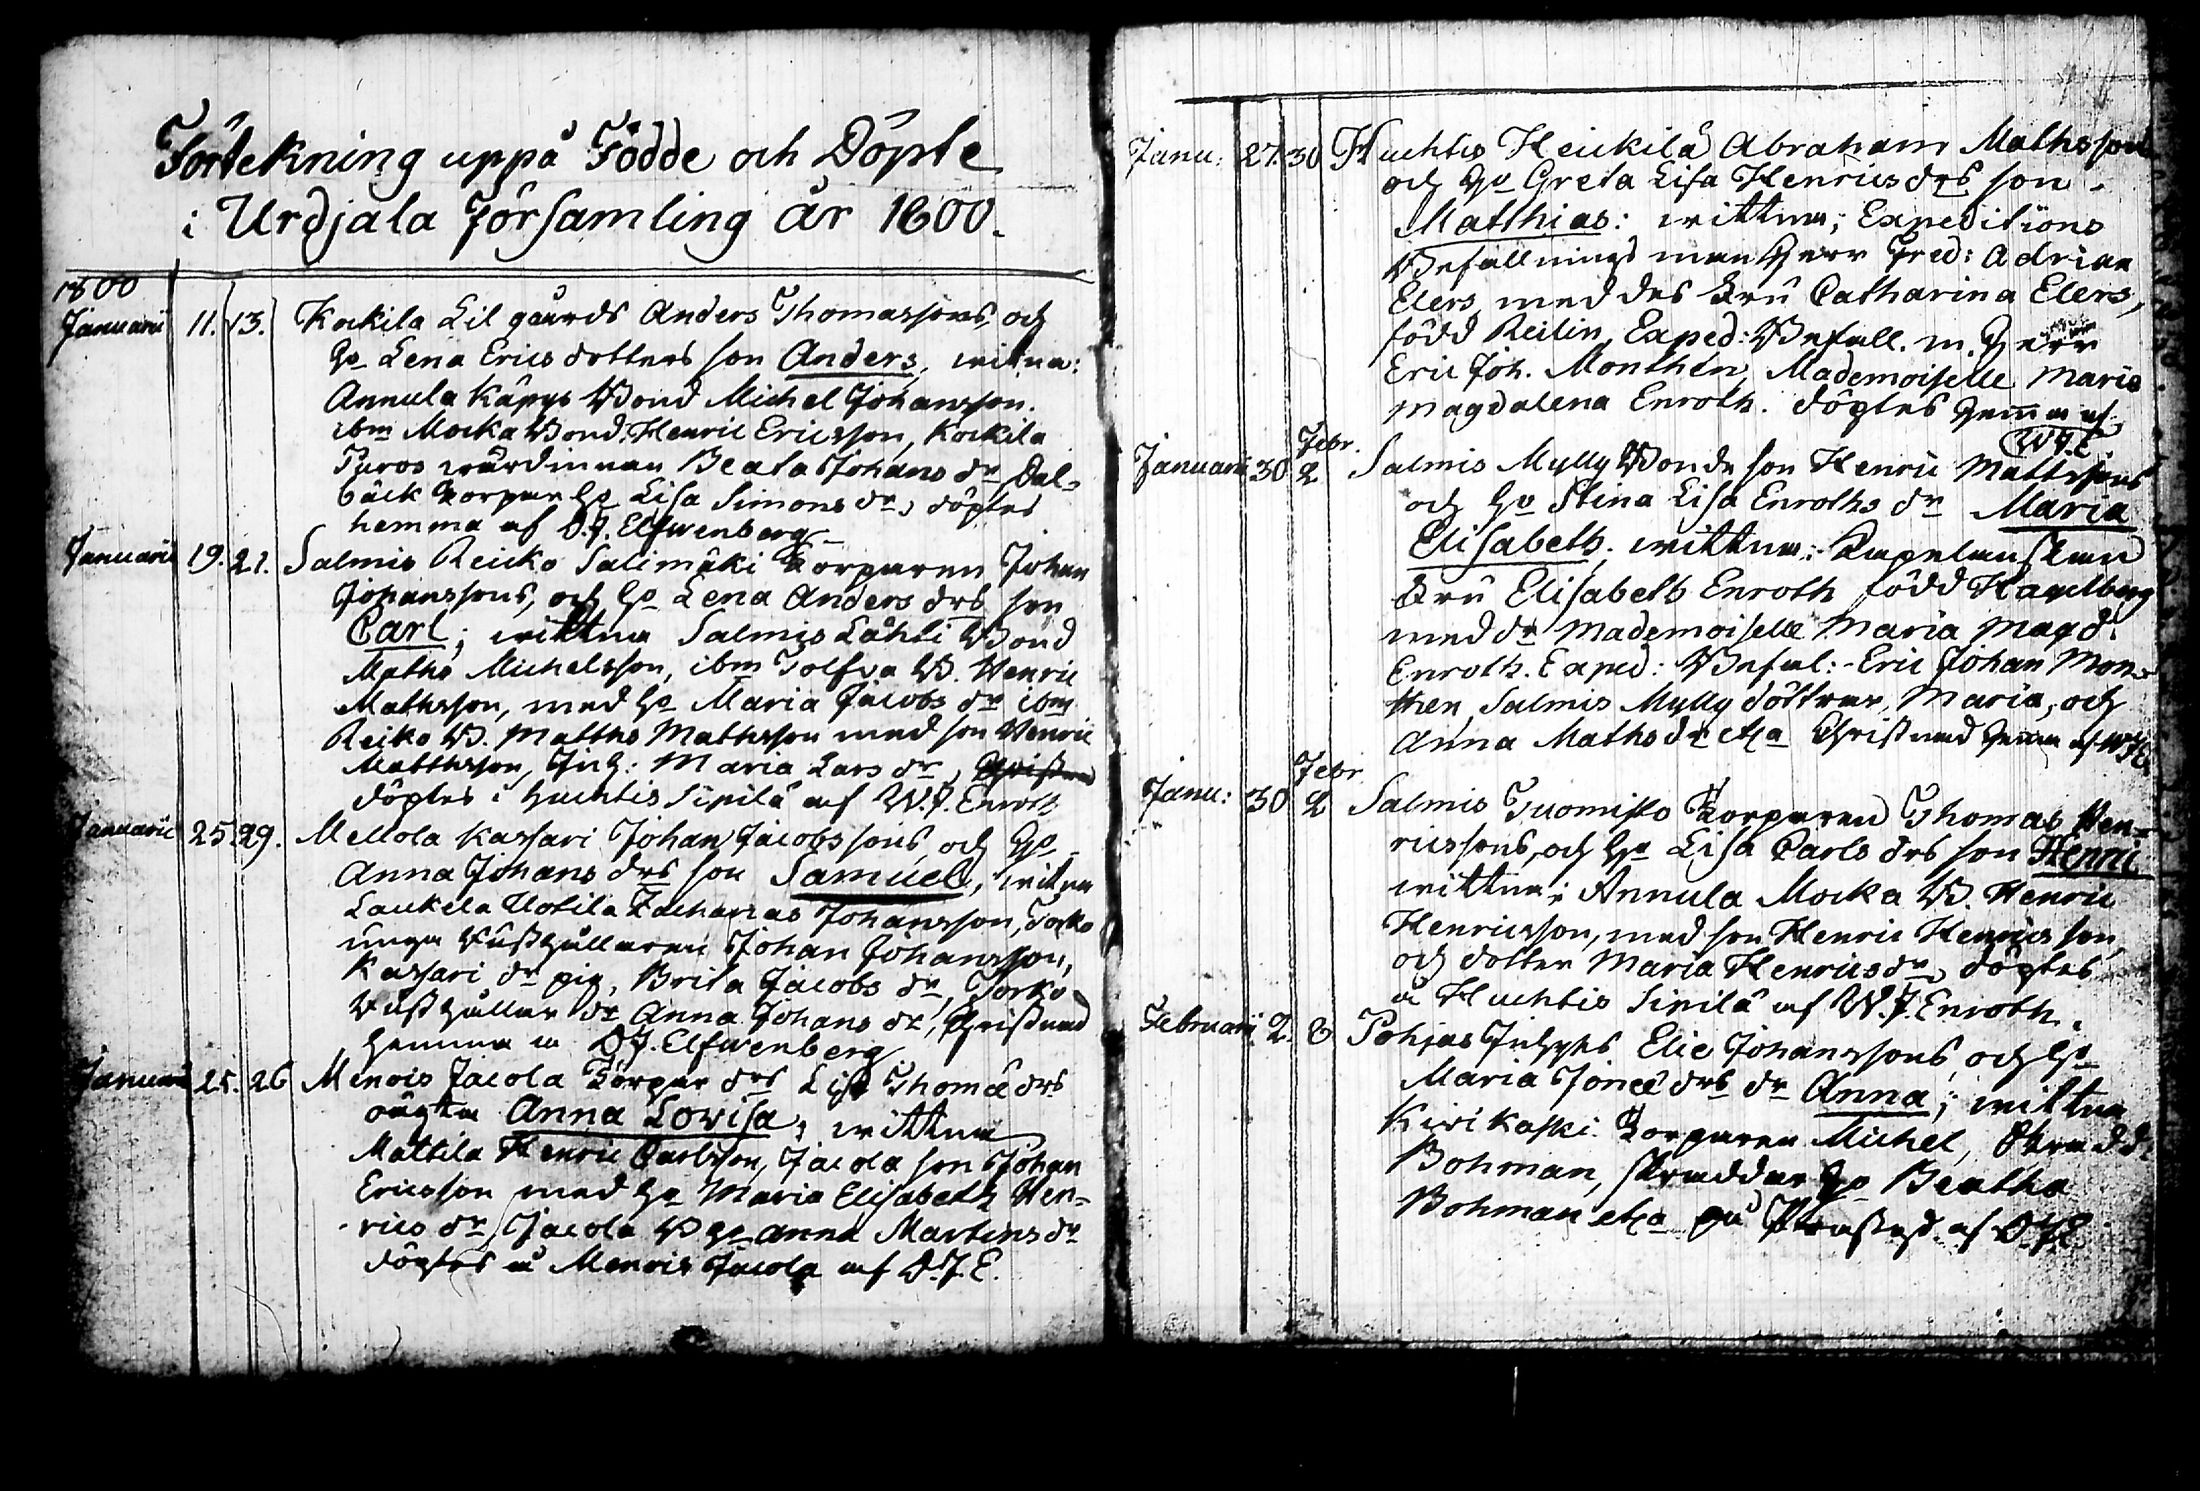 Förtekning uppå Födde och Döpte
i Urdjala församling år 1800.
1800
Januarii 11. 13. Kockila Lilgårds Anders Thomassons, och
Ho Lena Erics dotters son Anders, wittna:
Annula Käpys Bond Michel Johansson.
ibm Mocka Bond: Henric Ericsson, Kockila
Puros wärdinnan Beata Johans dr Dal-
bäck Torpar ho Lisa Simons dr, döptes
hemma af D.J. Elfwenberg
Januarii 19. 21. Salmis Reicko Salimäki Torparen Johan
Johanssons, och ho Lena Anders drs son
Carl; wittna Salmis Lähti Bond
Maths Michelsson, ibm Tolfva B. Henric
Mathsson, med ho Maria Jacobs dr ibm
Reiko B. Matths Mathsson med son Henric
Matthsson, Inh: Maria Lars dr,
döptes i Huchtis Sipilä af W.J. Enroth
Januarii 25. 29. Mellola Kassari Johan Jacobssons, och Ho
Anna Johans drs son Samuel, wittna
Laukela Uotila Zacharias Johansson, Torko
unga Busthållaren Johan Johansson,
Kassari dr pig. Brita Jacobs dr, Torko
Busthållar dr Anna Johans dr, Christnad
hemma a D.J. Elfwenberg
Januarii 25. 26 Menois Jacola Torpar drs Lisa Thomæ drs
oägta Anna Lovisa; wittna
Mattila Henric Carlsson, Jacola son Johan
Ericsson med ho Maria Elisabeth Hen-
rics dr Jacola B ho Anna Martins dr
döptes å Menois Jacola af D.J.E.
Janu: 27. 30 Huchtis Heickilä Abraham Mathsson
och Ho Greta Lisa Henrics drs son
Matthias: wittna; Expeditions
Befallningsman Herr Fred: Adrian
Elers med des Fru Catharina Elers,
född Reilin, Exped: Befall. m. Herr
Eric Joh. Monthén, Mademoiselle Maria
Magdalena Enroth. döptes hemma af
W.J.E
Januarii 30 Febr. 2 Salmis Mylly Bonde son Henric Mattssons
och Ho Stina Lisa Enroths dr Maria
Elisabeth. wittna: Capelanskan
Fru Elisabeth Enroth född Hagelberg
med dr Mademoiselle Maria Magd:
Enroth. Exped: Befal: Eric Johan Mon-
then, Salmis Mylly döttrar, Maria, och
Anna Maths dr etca Christnad hemma af WJE
Janu: 30 Febr 2 Salmis Tuomisto Torparen Thomas Hen-
ricssons, och Ho Lisa Carls drs son Henric
wittna; Annula Mocka B. Henric
Henricsson, med son Henric Henricsson,
och dotter Maria Henrics dr, döptes
å Huchtis Sipilä af W.J. Enroth.
Februarii 2. 8 Pohjas Inhyses Elie Johanssons, och Ho
Maria Jonæ drs dr Anna; wittna
Kivikoski Torparen Michel, Skrädd:
Bohman, skräddar Ho Beatha
Bohman etca på Prästgd. af D.J.E.